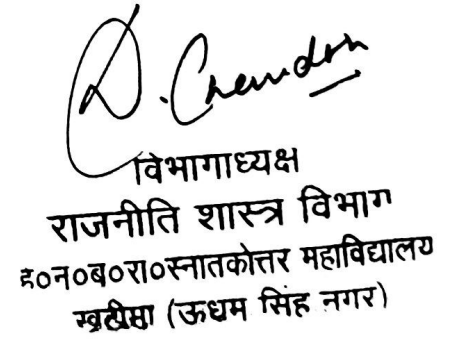 D. Chandra
विभागाध्यक्ष
राजनीति शास्त्र विभाग
ह०न०ब०रा०स्नातकोत्तर महाविद्यालय
खटीमा (ऊधम सिंह नगर)